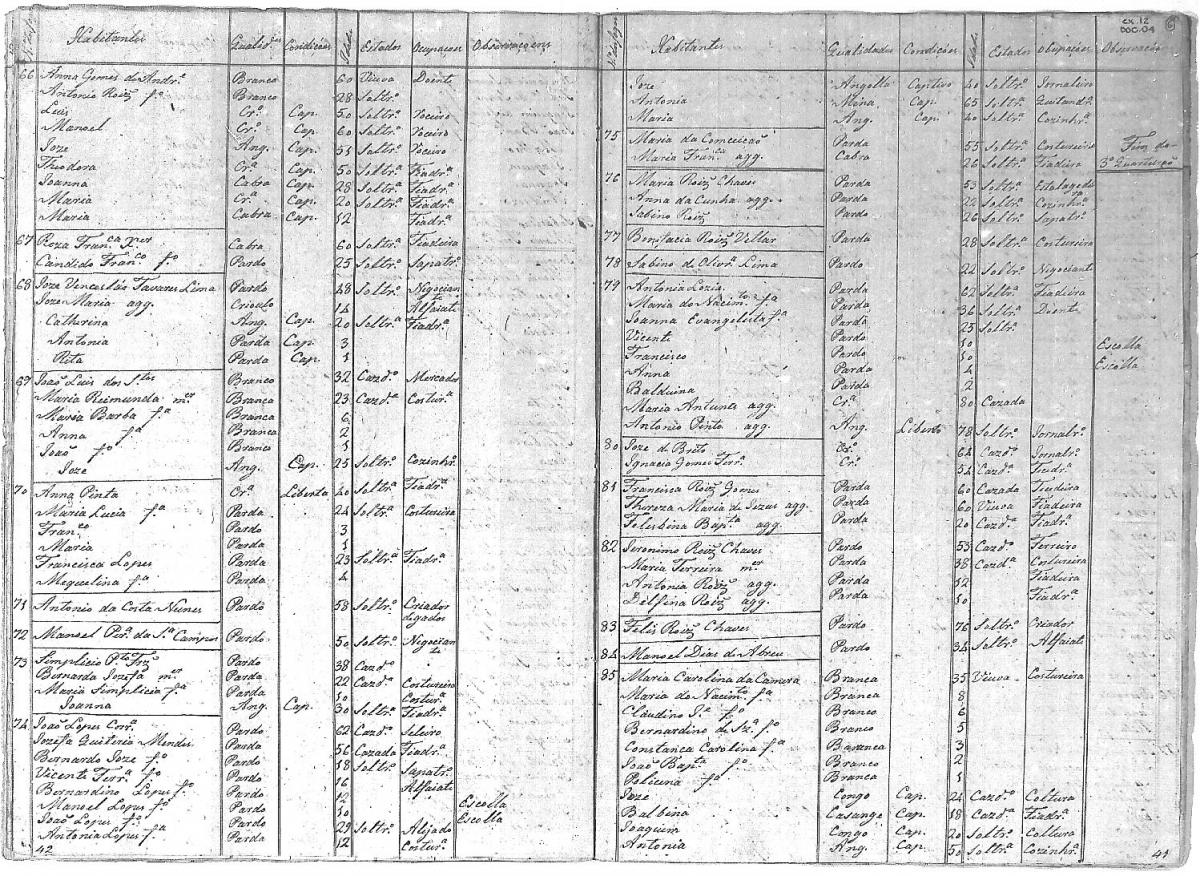 N. de fogos Habitantes Qualid.es Condições Idades Estados Ocupações Observaçoens
66 Anna Gomes de Andr.ª Branca 60 Viuva Doente
Antonio Roiz f.º Branco 28 Soltr.º
Luis Cr.º Cap. 50 Soltr.º Roceiro
Manoel Cr.º Cap. 60 Soltr.º Roceiro
Joze Ang. Cap. 51 Soltr.º Roceiro
Theodora Cr.ª Cap. 50 Soltr.ª Fiadr.ª
Joanna Cabra Cap. 28 Soltr.ª Fiadr.ª
Maria Cr.ª Cap. 20 Soltr.ª Fiadr.ª
Maria Cabra Cap. 12 Fiadr.ª
67 Roza Fran.ca X.er Cabra 60 Soltr.ª Fiadeira
Candido Fran.co f.º Pardo 25 Soltr.º Sapatr.º
68 Joze Venceslás Tavares Lima Pardo 48 Soltr.º Negociante
Joze Maria agg. Crioulo 14 Alfaiate
Catherina Ang. Cap. 20 Soltr.ª Fiadr.ª
Antonia Parda Cap. 3
Rita Parda Cap. 1
69 João Luis dos S.tos Branco 32 Cazd.º Mercador
Maria Reimunda m.er Branca 23 Cazd.ª Costur.ª
Maria Barba f.ª Branca 6
Anna f.ª Branca 2
João f.º Branco 1
Joze Ang. Cap. 25 Soltr.º Cozinhr.º
70 Anna Pinta Cr.ª Liberta 40 Soltr.ª Fiadr.ª
Maria Lucia f.ª Parda 24 Soltr.ª Costureira
Fran.co Pardo 3
Maria Parda 1
Francisca Lopes Parda 23 Soltr.ª Fiadr.ª
Miquelina f.ª Parda 4
71 Antonio da Costa Nunes Pardo 58 Soltr.º Criador de gados
72 Manoel Per.ª da S.ª Campos Pardo 50 Soltr.º Negociante
73 Simplicio P.to Frz Pardo 38 Cazd.º
Bernarda Jozefa m.er Parda 22 Cazd.ª Costureira
Maria Simplicia f.ª Parda 10 Costur.ª
Joanna Ang. Cap. 30 Soltr.ª Fiadr.ª
74 João Lopes Corr.ª Pardo 62 Cazd.º Seleiro
Jozefa Quiteria Mendes Parda 56 Cazada Fiadr.ª
Bernardo Joze f.º Pardo 18 Soltr.º Sapatr.º
Vicente Ferr.ª f.º Pardo 16 Alfaiate
Bernardino Lopes f.º Pardo 12 Escolla
Manoel Lopes f.º Pardo 10 Escolla
João Lopes f.º Pardo 29 Soltr.º Alejado
Antonia Lopes f.ª Parda 12 Costur.ª
42
cx.12
DOC.04
6
Habitantes Qualidades Condições Idades Estados Ocupações Observação
Joze Angolla Captivo 40 Soltr.º Jornaleiro
Antonia Mina Cap. 65 Soltr.ª Quitandr.ª
Maria Ang. Cap. 40 Soltr.ª Cozinhr.ª
75 Maria da Comceicaõ Parda 55 Soltr.ª Costureira
Maria Fran.ca agg. Cabra 26 Soltr.ª Fiadeira
Fim do
3º Quarteiraõ
76 Maria Roiz Chaves Parda 53 Soltr.ª Estalagedeira
Anna da Cunha agg. Parda 22 Soltr.ª Cozinhr.ª
Sabino Roiz Pardo 26 Soltr.º Sapatr.º
77 Bonifacia Roiz Villar Parda 28 Soltr.ª Costureira
78 Sabino de Olivr.ª Lima Pardo 22 Soltr.º Nigociante
79 Antonia Lozia Parda 62 Soltr.ª Fiadeira
Maria do Nacim.to f.ª Parda 36 Soltr.ª Doente
Joanna Evangelista f.ª Parda 25 Soltr.ª
Vicente Pardo 10 Escolla
Francisco Pardo 10 Escolla
Anna Parda 4
Balduina Parda 2
Maria Antunes agg. Cr.ª 80 Cazada
Antonio Pinto agg. Ang. Liberto 78 Soltr.º Jornalr.º
80 Joze de Brito Cr.º 64 Cazd.º Jornalr.º
Ignacia Gomes Ferr.ª Cr.ª 54 Cazd.ª Fiadr.ª
81 Francisca Roiz Gomes Parda 60 Cazada Fiadeira
Thereza Maria de Jezus agg. Parda 60 Viuva Fiadeira
Felisbina Bap.ta agg. Parda 20 Cazd.ª Fiadr.ª
82 Jeronimo Roiz Chaves Pardo 53 Cazd.º Ferreiro
Maria Ferreira m.er Parda 38 Cazd.ª Costureira
Antonia Roiz agg. Parda 12 Fiadeira
Delfina Roiz agg. Parda 10 Fiadr.ª
83 Felis Roiz Chaves Pardo 76 Soltr.º Criador
84 Manoel Dias de Abreu Pardo 34 Soltr.º Alfaiate
85 Maria Carolina da Camera Branca 35 Viuva Costureira
Maria do Nacim.to f.ª Branca 8
Claudino J.ª f.º Branco 6
Bernardino de Sz.ª f.º Branco 5
Constanca Carolina f.ª Branca 3
João Bap.ta f.º Branco 2
Policena f.ª Branca 1
Joze Congo Cap. 24 Cazd.º Coltura
Balbina Casange Cap. 18 Cazd.ª Fiadr.ª
Joaquim Congo Cap. 20 Soltr.º Coltura
Antonia Ang. Cap. 50 Soltr.ª Cozinhr.ª